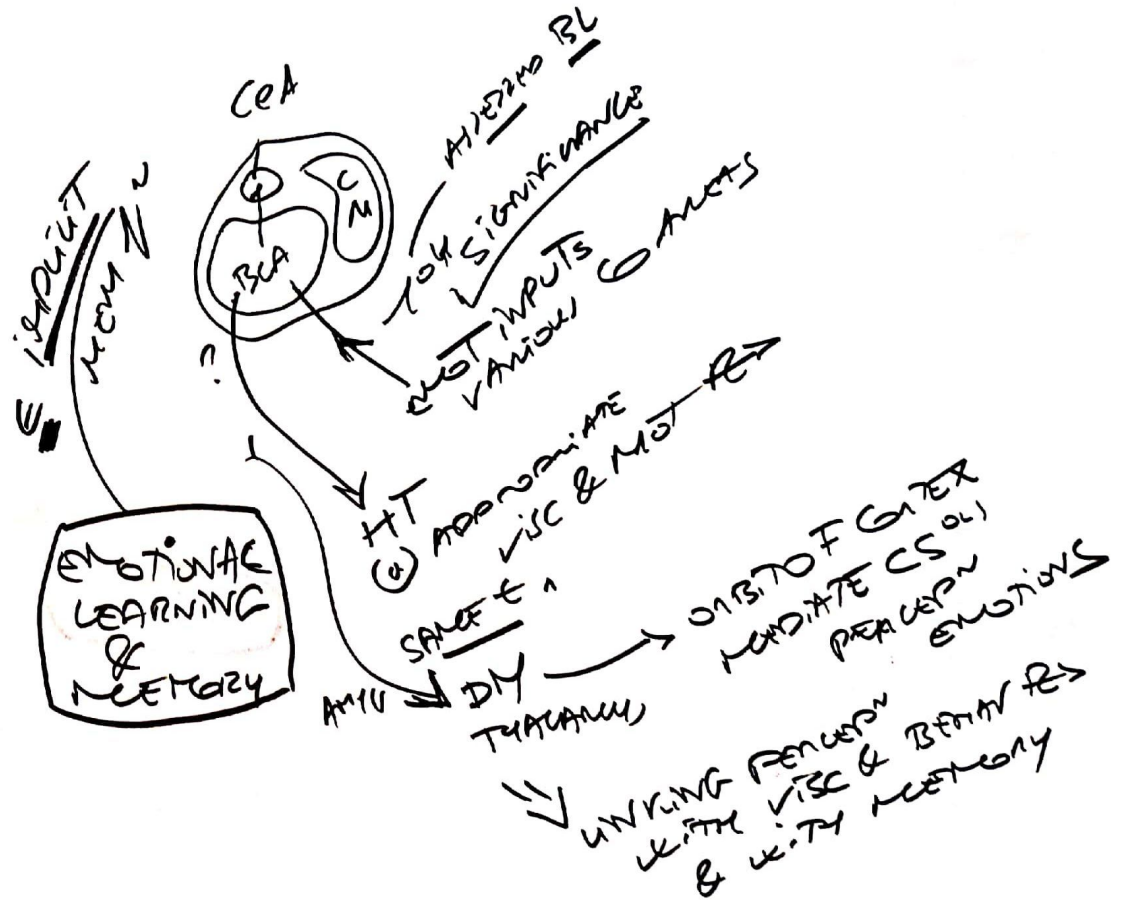 CeA
CM
BLA
BL
SIGNIFICANCE
EMOT INPUTS
VARIOUS AREAS
IMPLICIT
MEM
?
HT
APPROPRIATE
VISC & MOT
EMOTIONAL
LEARNING
&
MEMORY
SAME
DM
THALAMUS
ORBITOF CORTEX
MEDIATE CS
PERCEPN
EMOTIONS
LINKING PERCEPN
WITH VISC & BEHAV
& WITH MEMORY